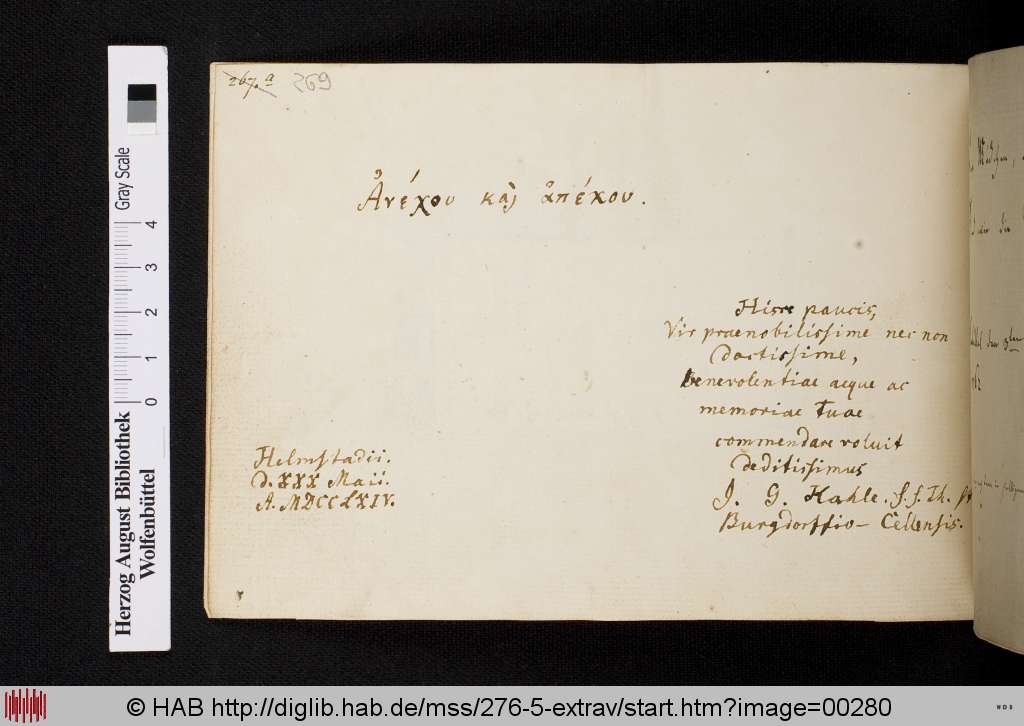 267.a 269
Ἀνέχου καὶ ἀπέχου.
Hisce paucis,
Vir praenobilissime nec non
doctissime,
benevolentiae aeque ac
memoriae tuae
commendare voluit
deditissimus
J. G. Hahle. S. S. Th. St
Burgdorffio-Cellensis.
Helmstadii.
D. XXX Maii.
A. MDCCLXIV.
Herzog August Bibliothek
Wolfenbüttel
Gray Scale
0 1 2 3 4
© HAB http://diglib.hab.de/mss/276-5-extrav/start.htm?image=00280